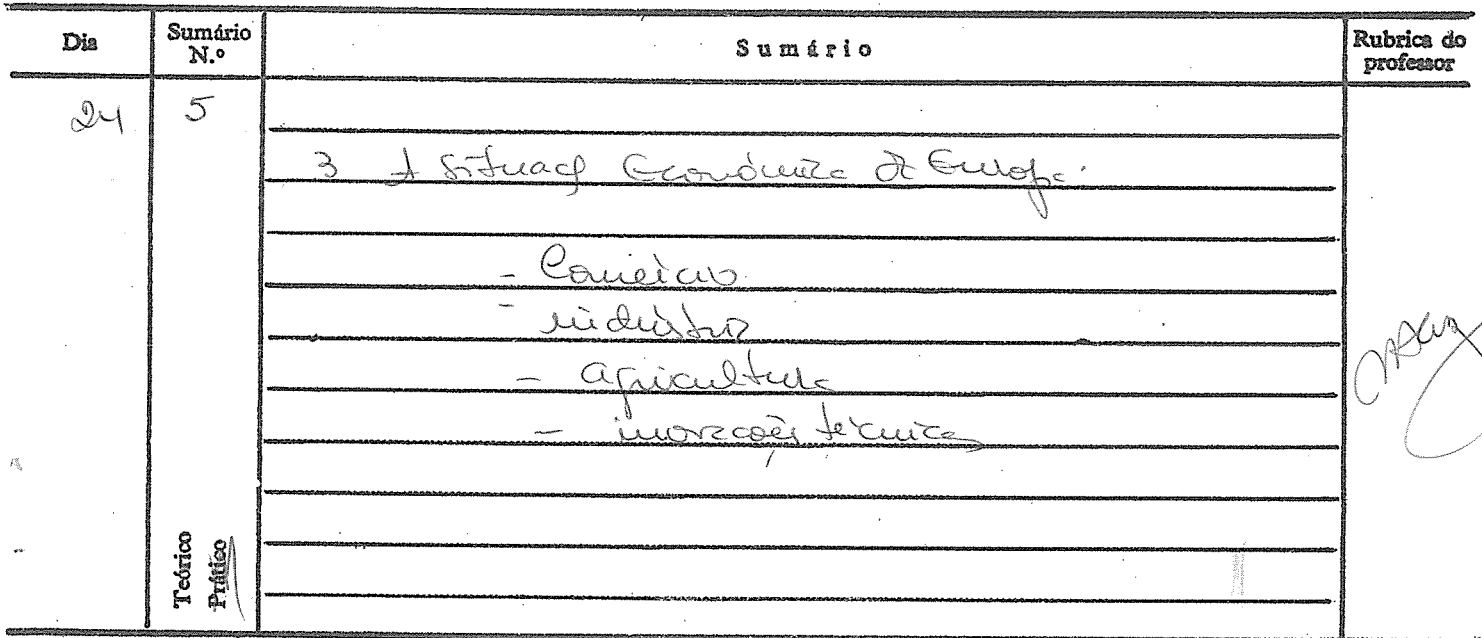 Dia Sumário N.º Sumário Rubrica do professor
24 5
3 A situação Económica da Europa.
- Comércio
- indústria
- agricultura
- inovações técnicas
Teórico
Prático